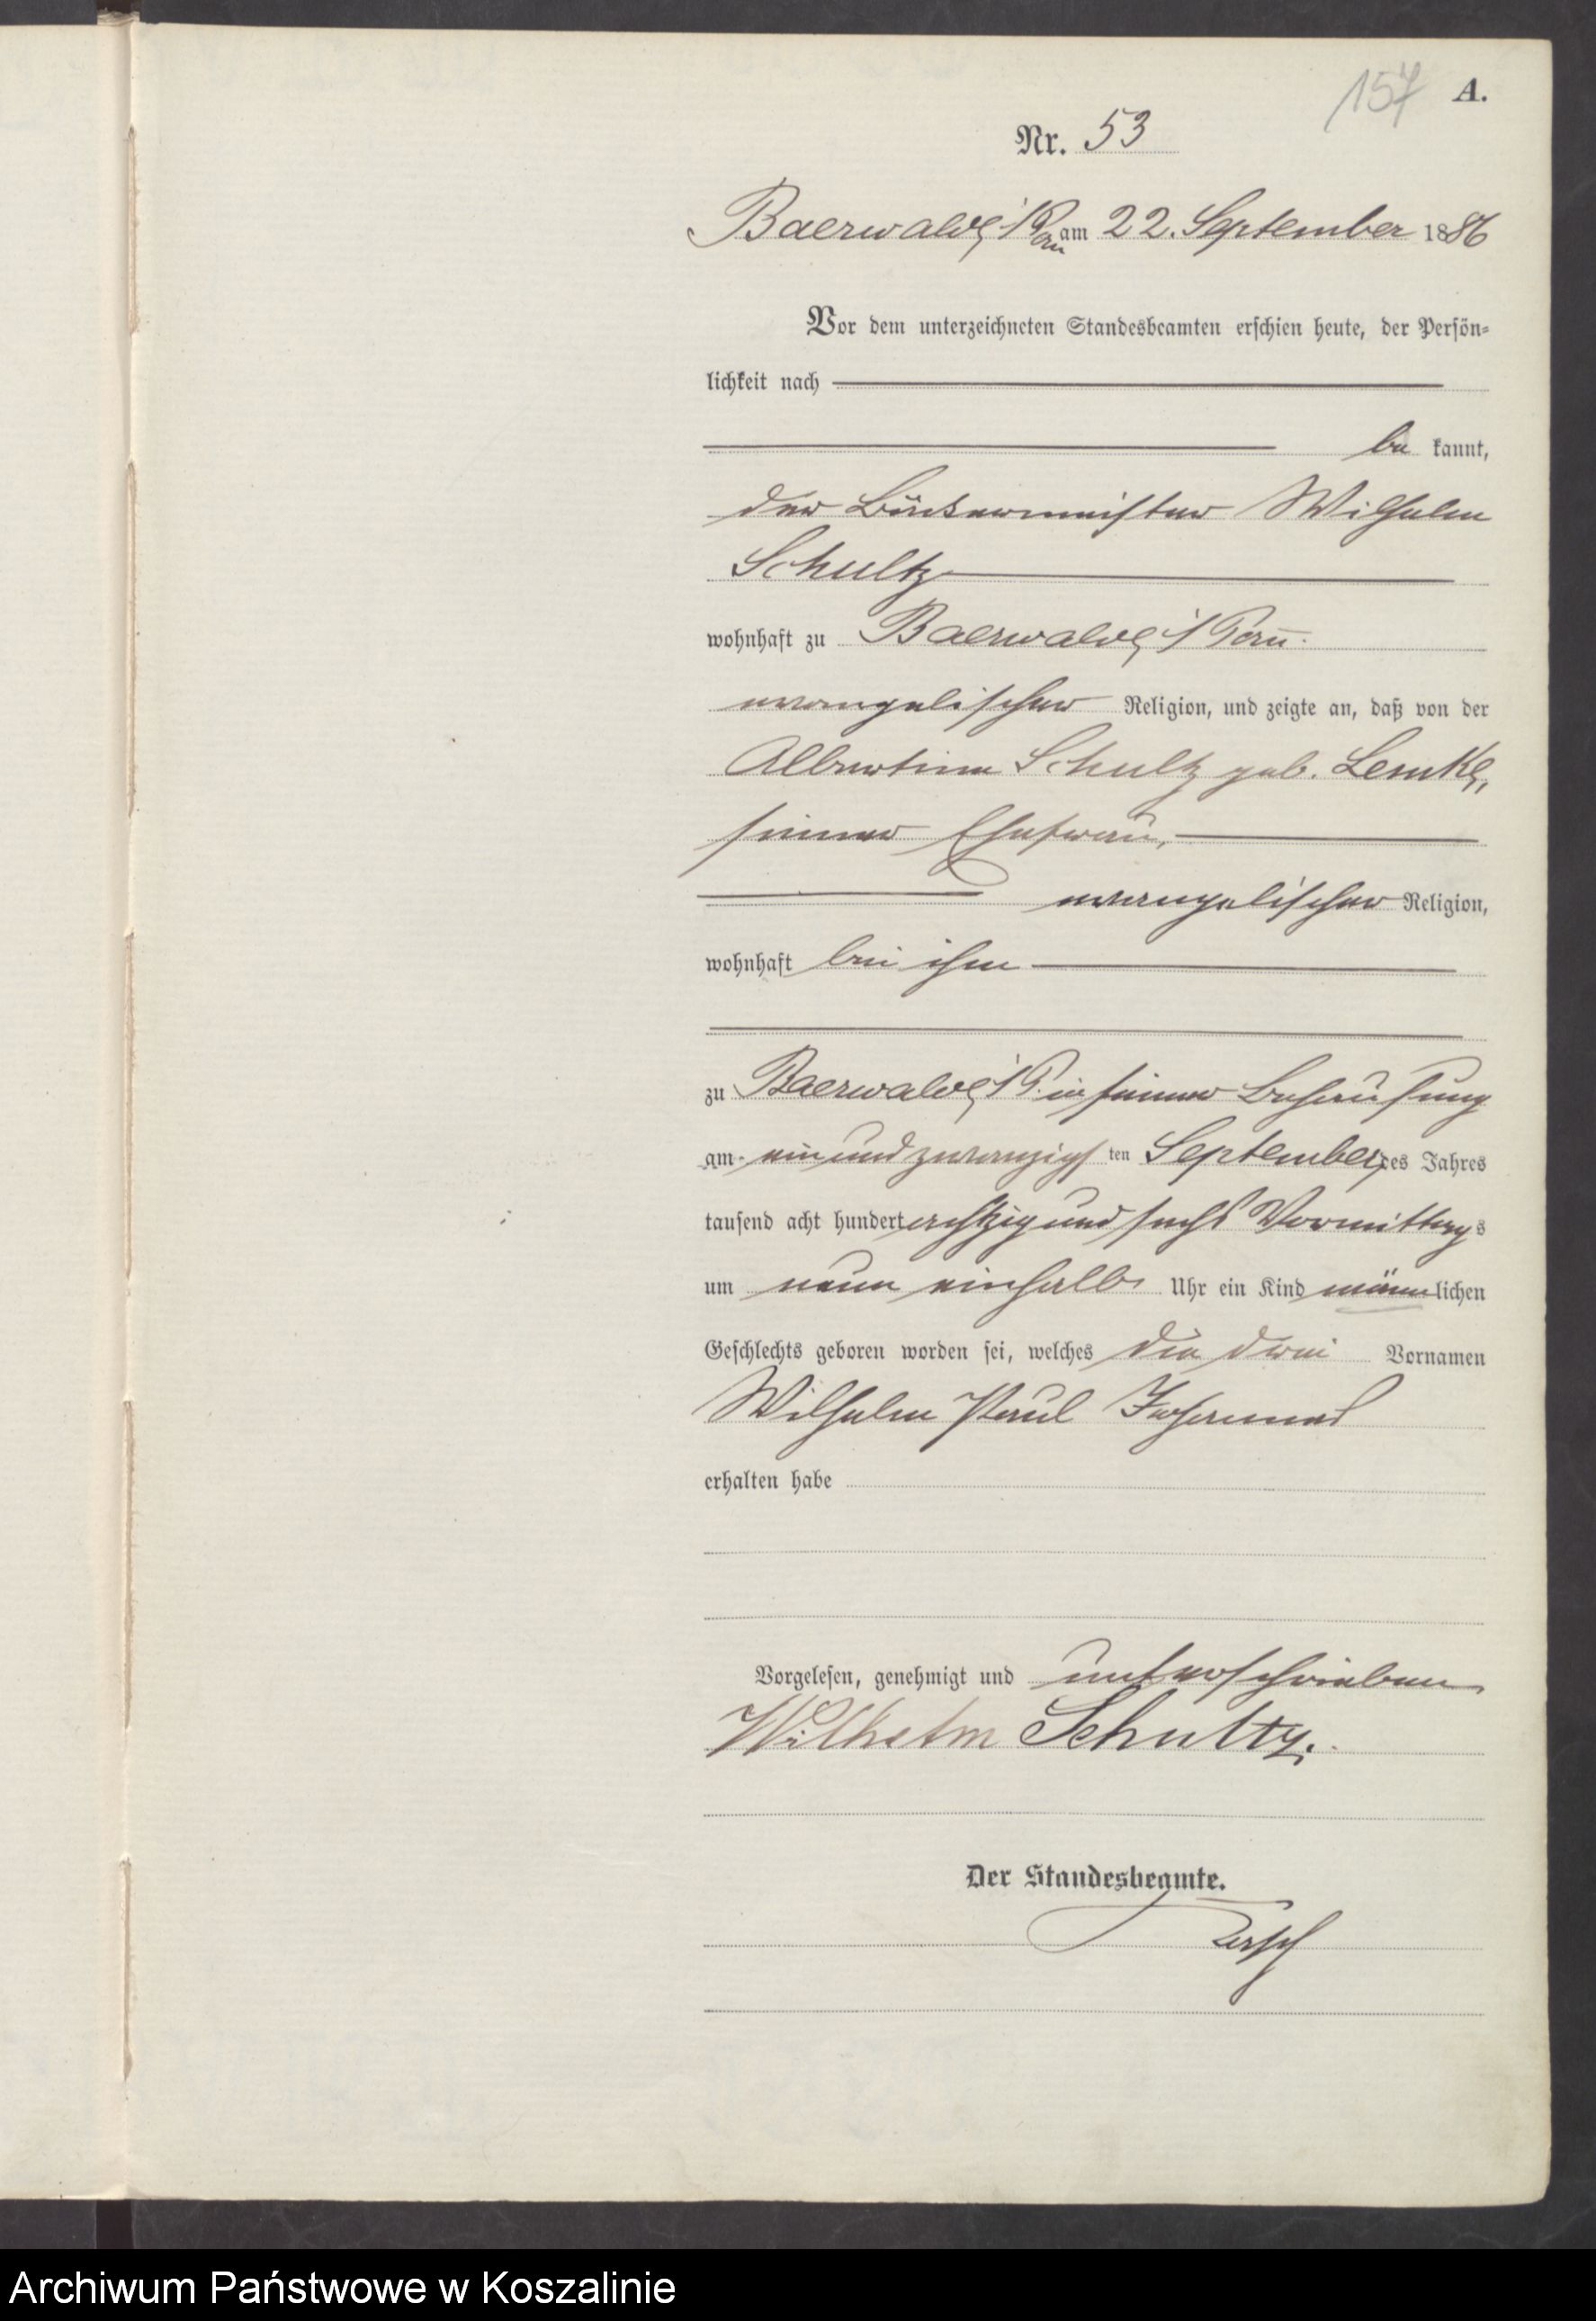 157 A.
Nr. 53
Baerwalde i/Pom am 22. September 1886
Vor dem unterzeichneten Standesbeamten erschien heute, der Persön-
lichkeit nach
be kannt,
der Bäckermeister Wilhelm
Schultz
wohnhaft zu Baerwalde i/Pom.
evangelischer Religion, und zeigte an, daß von der
Albertine Schultz geb. Lemke,
seiner Ehefrau,
evangelischer Religion,
wohnhaft bei ihm
zu Baerwalde i/P. in seiner Behausung
am ein und zwanzigsten September des Jahres
tausend acht hundert achtzig und sechs Vormittags
um neun einhalb Uhr ein Kind männlichen
Geschlechts geboren worden sei, welches die drei Vornamen
Wilhelm Paul Johannes
erhalten habe
Vorgelesen, genehmigt und unterschrieben
Wilhelm Schultz.
Der Standesbeamte.
Archiwum Państwowe w Koszalinie